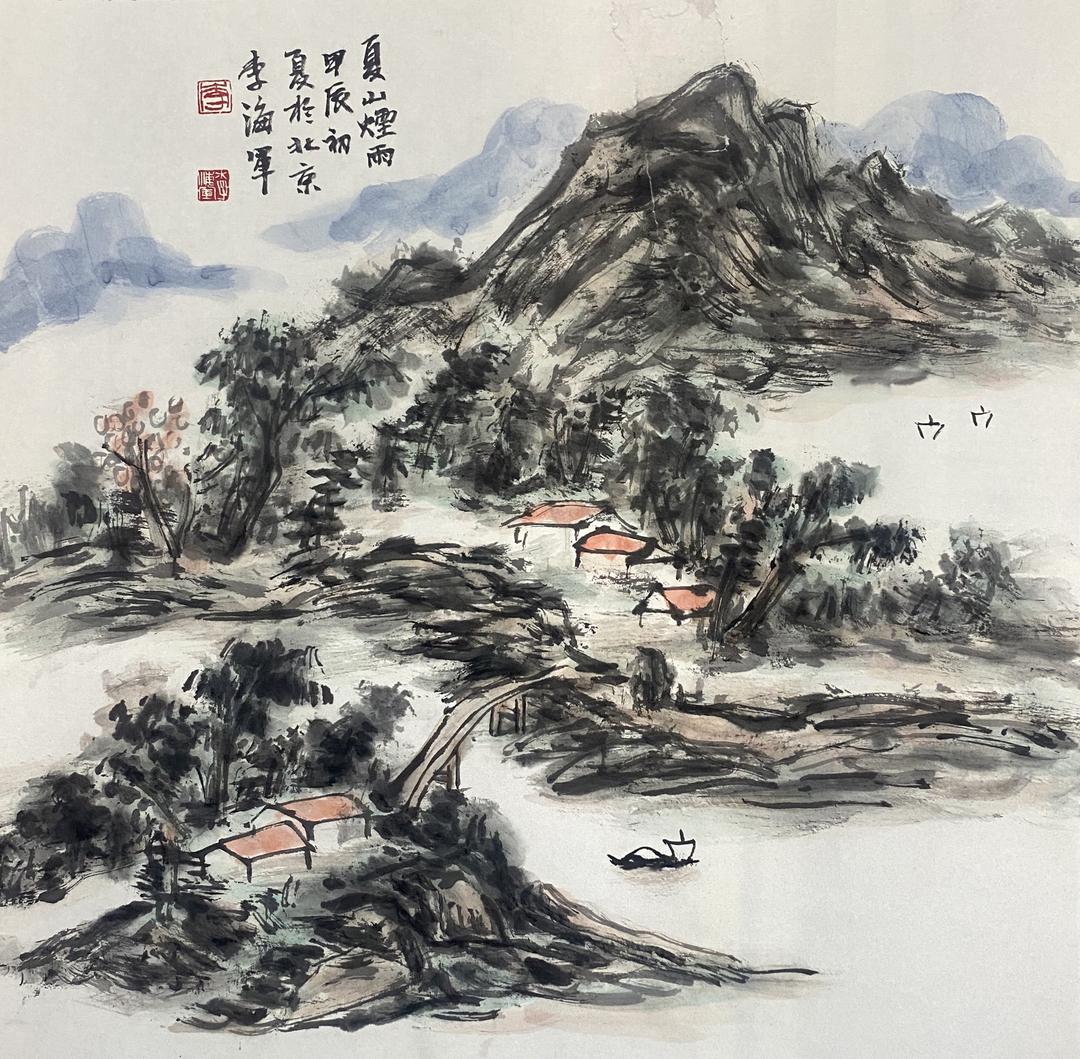 夏山煙雨
甲辰初
夏於北京
李海軍
李